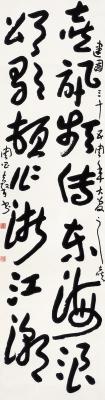 喜訊頻傳東海浪
頌歌頓作浙江潮
建國三十五周年大慶之喜